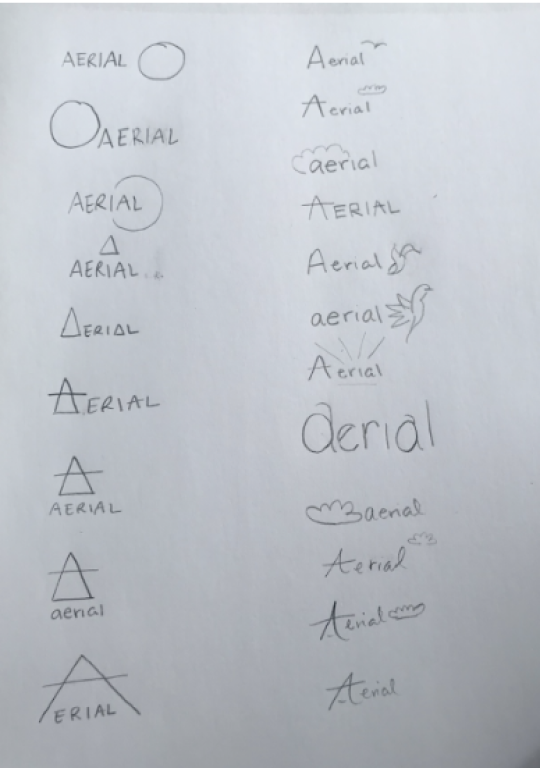 AERIAL
AERIAL
AERIAL
AERIAL
AERIAL
AERIAL
AERIAL
aerial
AERIAL
Aerial
Aerial
aerial
AERIAL
Aerial
aerial
Aerial
aerial
aerial
Aerial
Aerial
Aerial